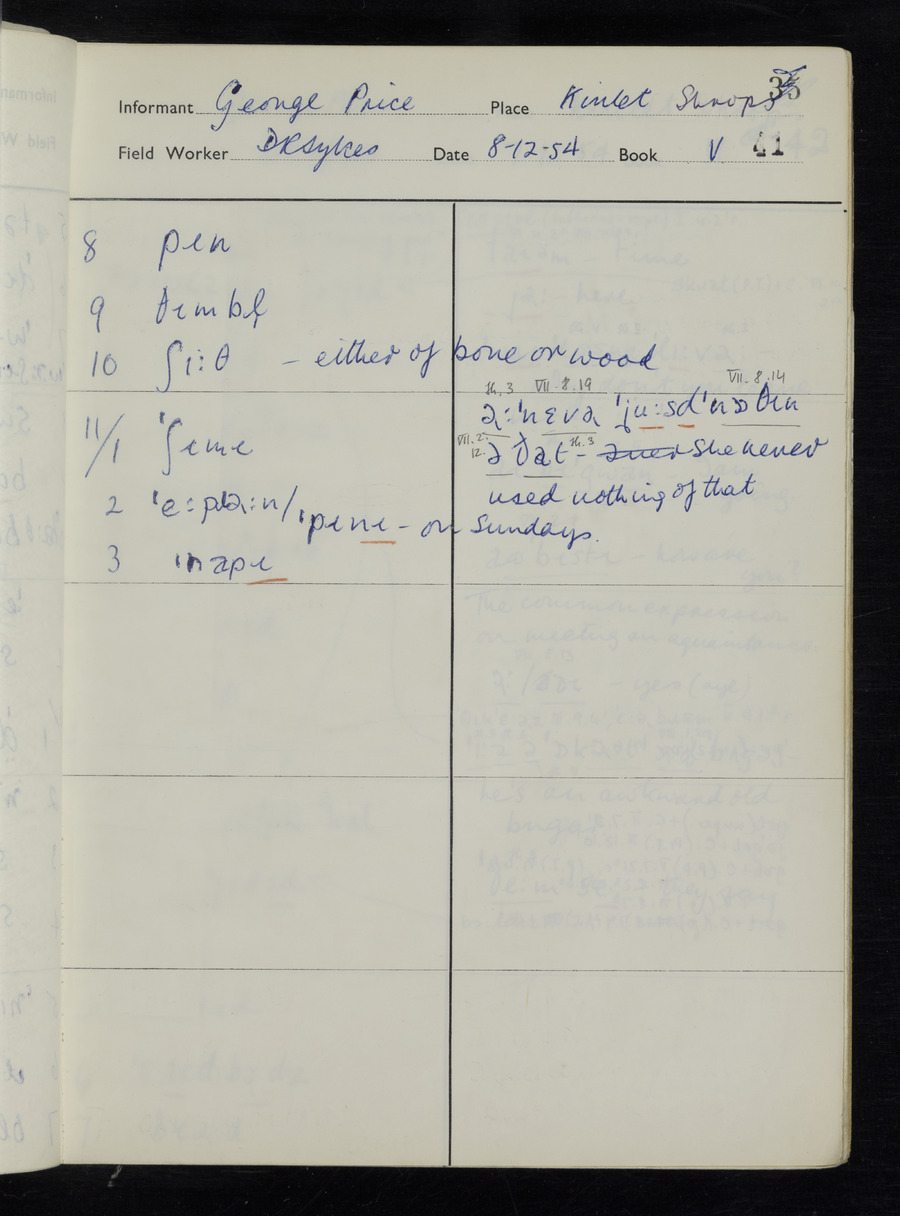 35
Informant George Price Place Kinlet Shrops
Field Worker DRSykes Date 8-12-54 Book V 41
8 pɪn
9 θɪmbɫ
10 ʃi:θ – either of bone or wood
11/1 ˈʃɪmɪ
2 ˈe:pɹə:n/ˈpɪnɪ – on Sundays.
3 ˈnapɪ
th. 3 VII.8.19 VII.8.14
ə:ˈnɛvə ˈju:sd ˈnɔθɪn
VII.2.12. th.3
ə ðat – She never
used nothing of that